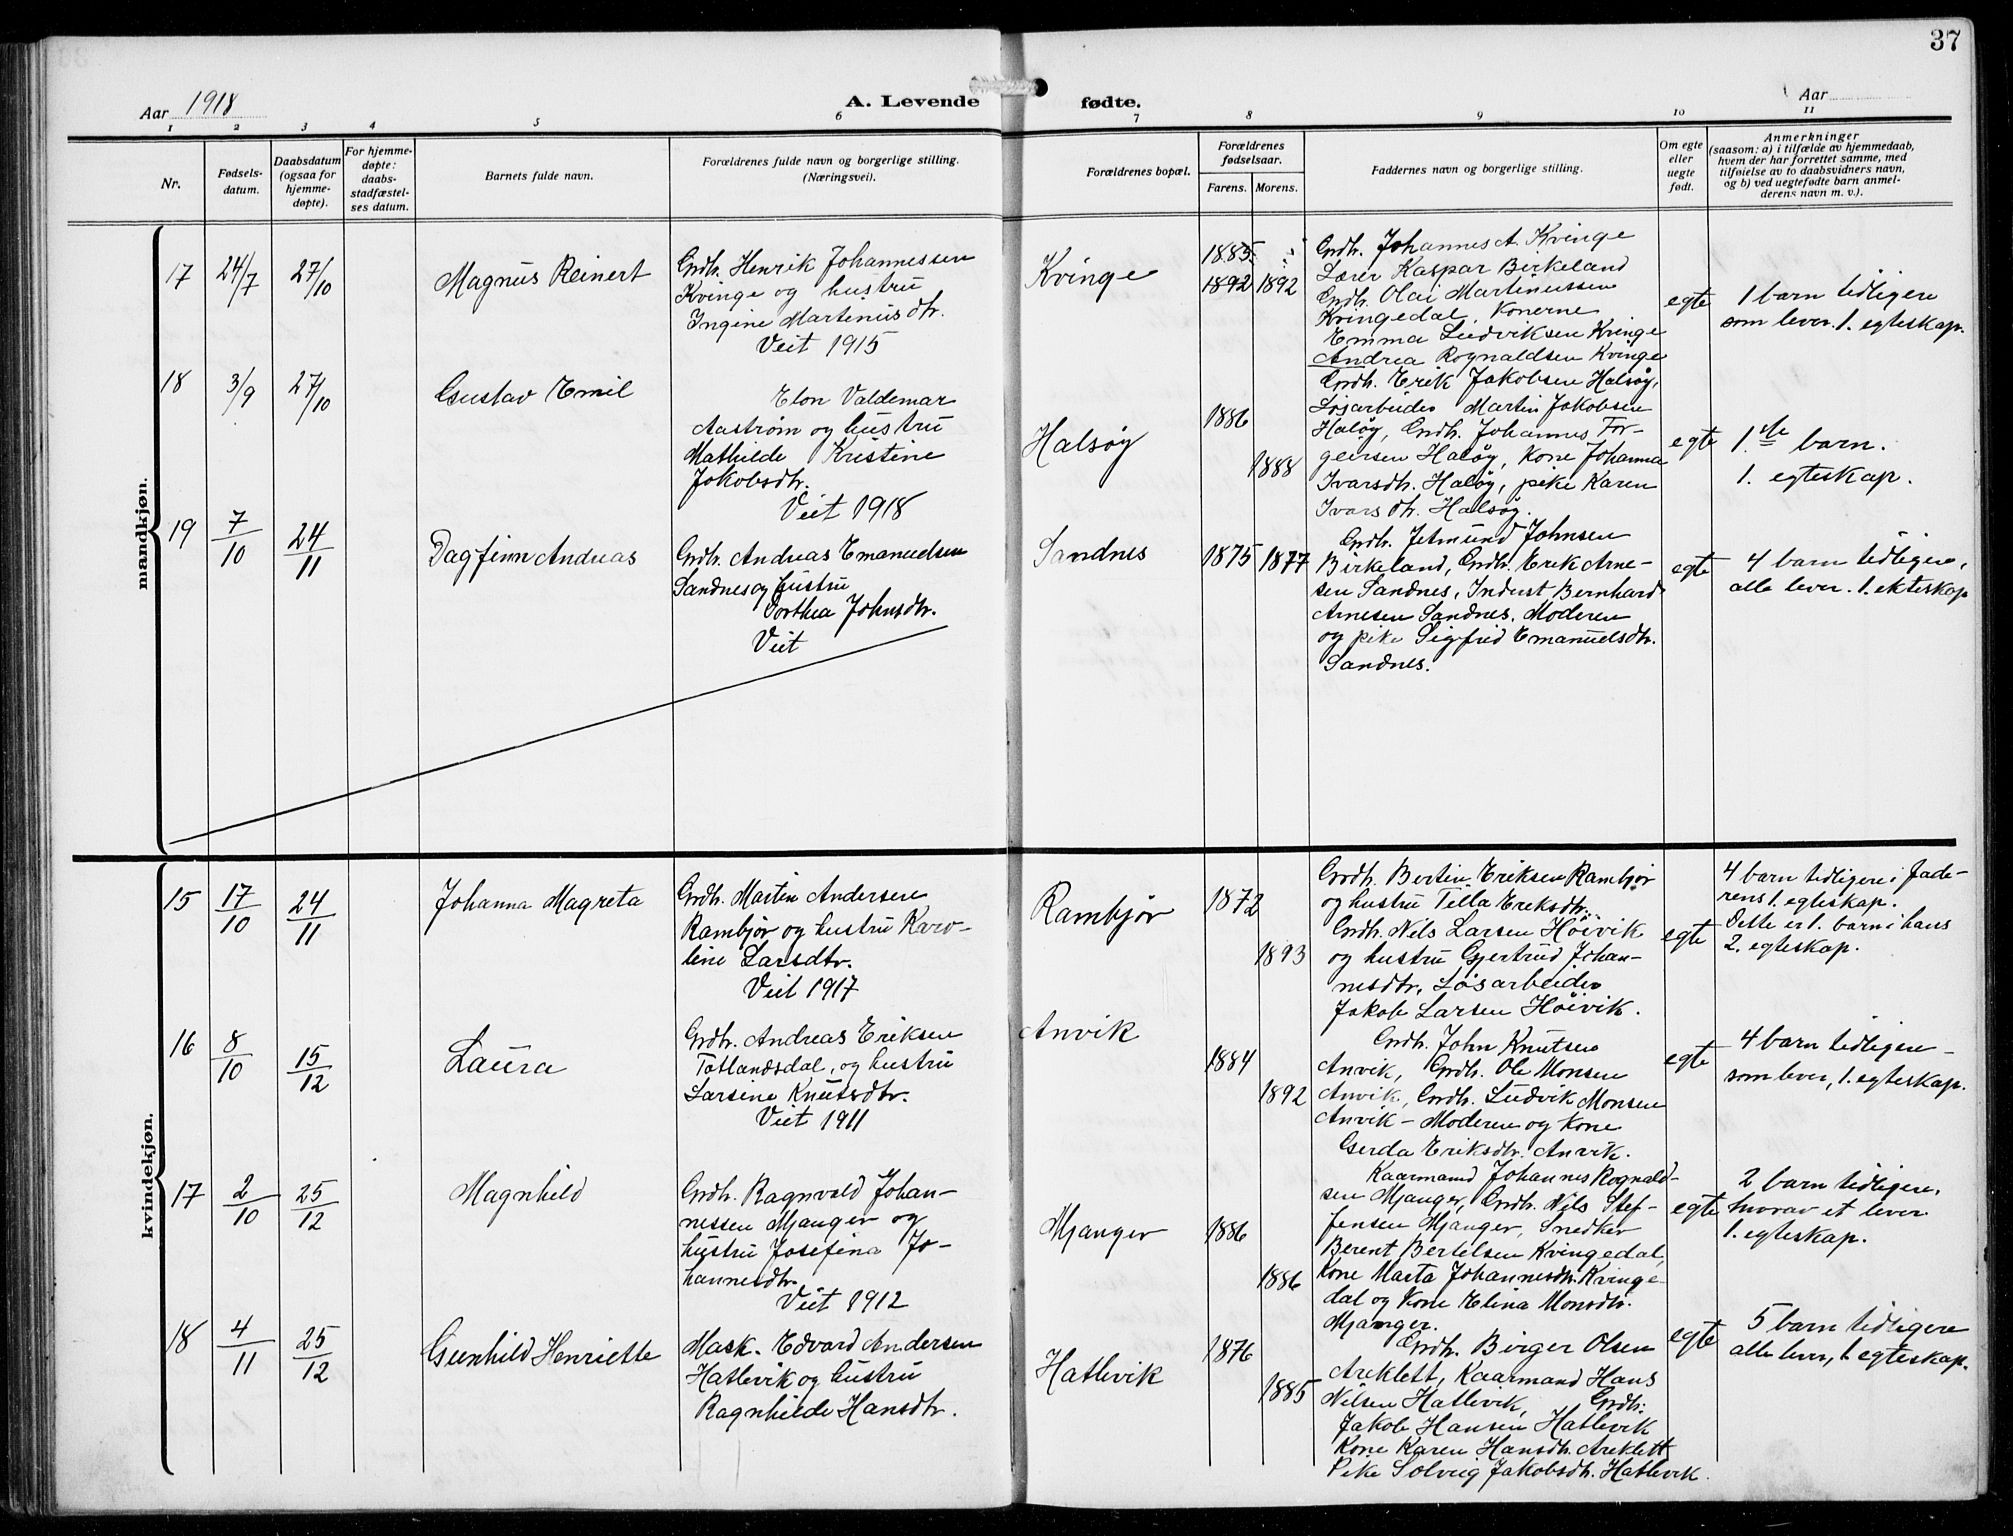 37
Aar 1918
A. Levende fødte.
Aar
1 2 3 4 5 6 7 8 9 10 11
Nr.
Fødsels-
datum.
Daabsdatum
(ogsaa for
hjemme-
døpte).
For hjemme-
døpte:
daabs-
stadfæstel-
ses datum.
Barnets fulde navn.
Forældrenes fulde navn og borgerlige stilling.
(Næringsvei).
Forældrenes bopæl.
Forældrenes
fødselsaar.
Farens. Morens.
Faddernes navn og borgerlige stilling.
Om egte
eller
uegte
født.
Anmerkninger
(saasom: a) i tilfælde av hjemmedaab,
hvem der har forrettet samme, med
tilføielse av to daabsvidners navn,
og b) ved uegtefødte barn anmel-
derens navn m. v.).
mandkjøn.
17
24/7
27/10
Magnus Reinert
Grdbr. Henrik Johannessen
Kvinge og hustru
Ingine Martinusdtr.
Viet 1915
Kvinge
1885
1892 1892
Grdb. Johannes A. Kvinge
Lærer Kaspar Birkeland
Grdb. Olai Martinussen
Kvingedal, Konerne
Emma Ludviksen Kvinge
Andrea Rognaldsen Kvinge
egte
1 barn tidligere
som lever. 1. egteskap.
18
3/9
27/10
Gustav Emil
Elon Valdemar
Aastrøm og hustru
Mathilde Kristine
Jakobsdtr.
Viet 1918
Halsøy
1886
1888
Grdb. Erik Jakobsen Halsøy,
Løsarbeider Martin Jakobsen
Haløy, Grdb. Johannes Tor-
geirsen Haløy, Kone Johanna
Ivarsdtr. Haløy, pike Karen
Ivarsdtr. Halsøy.
egte
1.ste barn.
1. egteskap.
19
7/10
24/11
Dagfinn Andreas
Grdb. Andreas Emanuelsen
Sandnes og hustru
Dorthea Johnsdtr.
Viet
Sandnes
1875 1877
Grdb. Jetmund Johnsen
Birkeland, Grdb. Erik Arne-
sen Sandnes, Indust Bernhard
Arnesen Sandnes, Moderen
og pike Sigfrid Emanuelsdtr.
Sandnes.
egte
4 barn tidligere,
alle lever. 1. ekteskap
kvindekjøn.
15
17/10
24/11
Johanna Magreta
Grdb. Martin Andersen
Rambjør og hustru Karo-
line Larsdtr.
Viet 1917
Rambjør
1872
1893
Grdb. Bertin Eriksen Rambjør
og hustru Tilla Eriksdtr.
Grdb. Nils Larsen Høivik
og hustru Gjertrud Johan-
nesdtr, Løsarbeider
Jakob Larsen Høivik.
egte
4 barn tidligere i fade-
rens 1. egteskap.
Dette er 1. barn i hans
2. egteskap.
16
8/10
15/12
Laura
Grdbr. Andreas Eriksen
Totlandsdal, og hustru
Larsine Knutsdtr.
Viet 1911
Anvik
1884
1892
Grdb. John Knutsen
Anvik, Grdb. Ole Monsen
Anvik, Grdb. Ludvik Monsen
Anvik – Moderen og Kone
Gerda Eriksdtr. Anvik.
egte
4 barn tidligere –
som lever, 1. egteskap.
17
2/10
25/12
Magnhild
Grdb. Ragnvald Johan-
nessen Mjanger og
hustru Josefina Jo-
hannesdtr
Viet 1912
Mjanger
1886
1886
Kaarmand Johannes Rognald-
sen Mjanger, Grdb. Nils Stef-
fensen Mjanger, Snedker
Berent Bertelsen Kvingedal,
Kone Marta Johannesdtr. Kvinge-
dal og Kone Elina Monsdtr.
Mjanger.
egte
2 barn tidligere,
hvorav et lever
1. egteskap.
18
4/11
25/12
Gunhild Henriette
Mask. Edvard Andersen
Hatlevik og hustru
Ragnhilde Hansdtr.
Hatlevik
1876
1885
Grdb. Birger Olsen
Areklett, Kaarmand Hans
Nilsen Hatlevik, Grdb.
Jakob Hansen Hatlevik
Kone Karen Hansdtr. Areklett
Pike Solveig Jakobsdtr. Hatlevik.
egte
5 barn tidligere
alle lever, 1. egteskap.